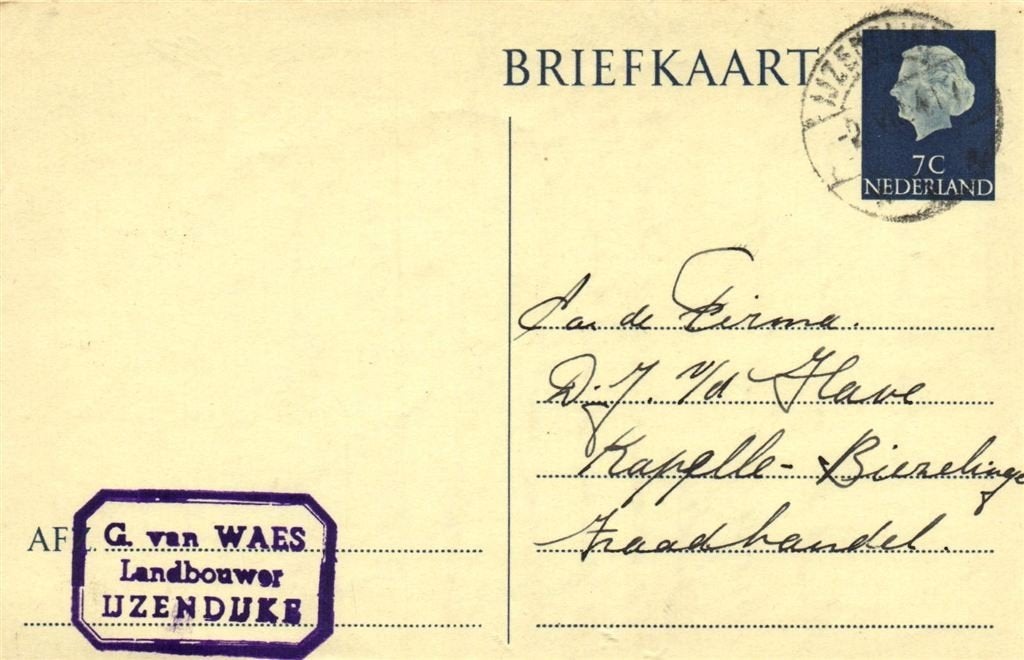 BRIEFKAART
IJZENDIJKE
7C
NEDERLAND
Aan de Firma.
v/d Have
Kapelle-Biezelinge
Zaadhandel.
AFZ.
G. van WAES
Landbouwer
IJZENDIJKE